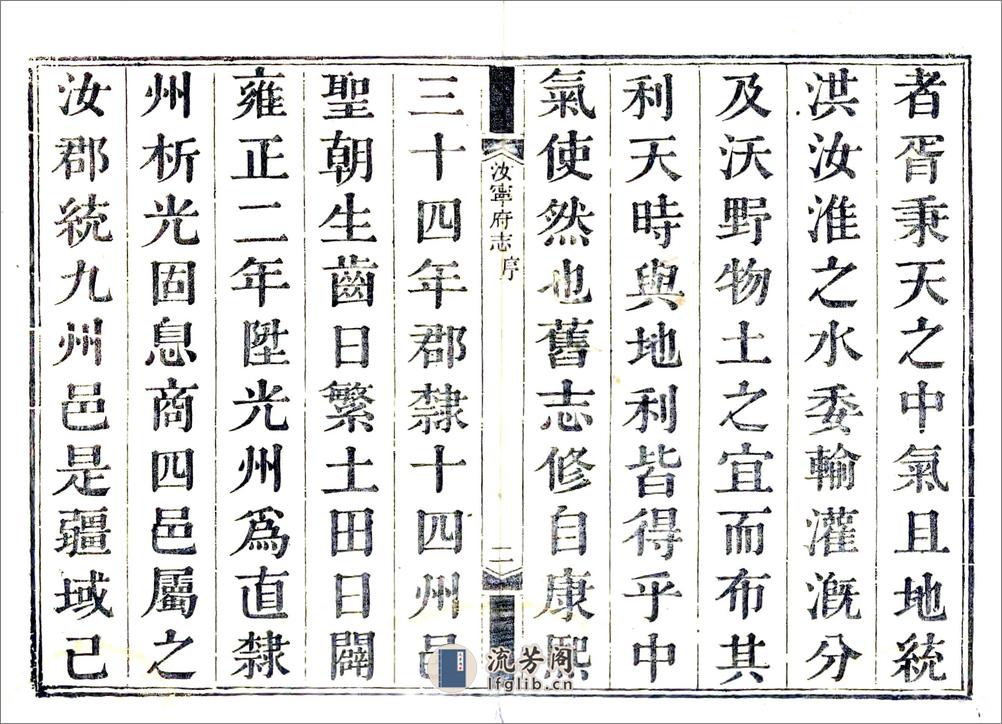 者胥秉天之中氣且地統
洪汝淮之水委輸灌溉分
及沃野物土之宜而布其
利天時與地利皆得乎中
氣使然也舊志修自康熙
汝寧府志 序 二
三十四年郡隸十四州邑
聖朝生齒日繁土田日闢
雍正二年陞光州爲直隸
州析光固息商四邑屬之
汝郡統九州邑是疆域己
流芳阁
lfglib.cn